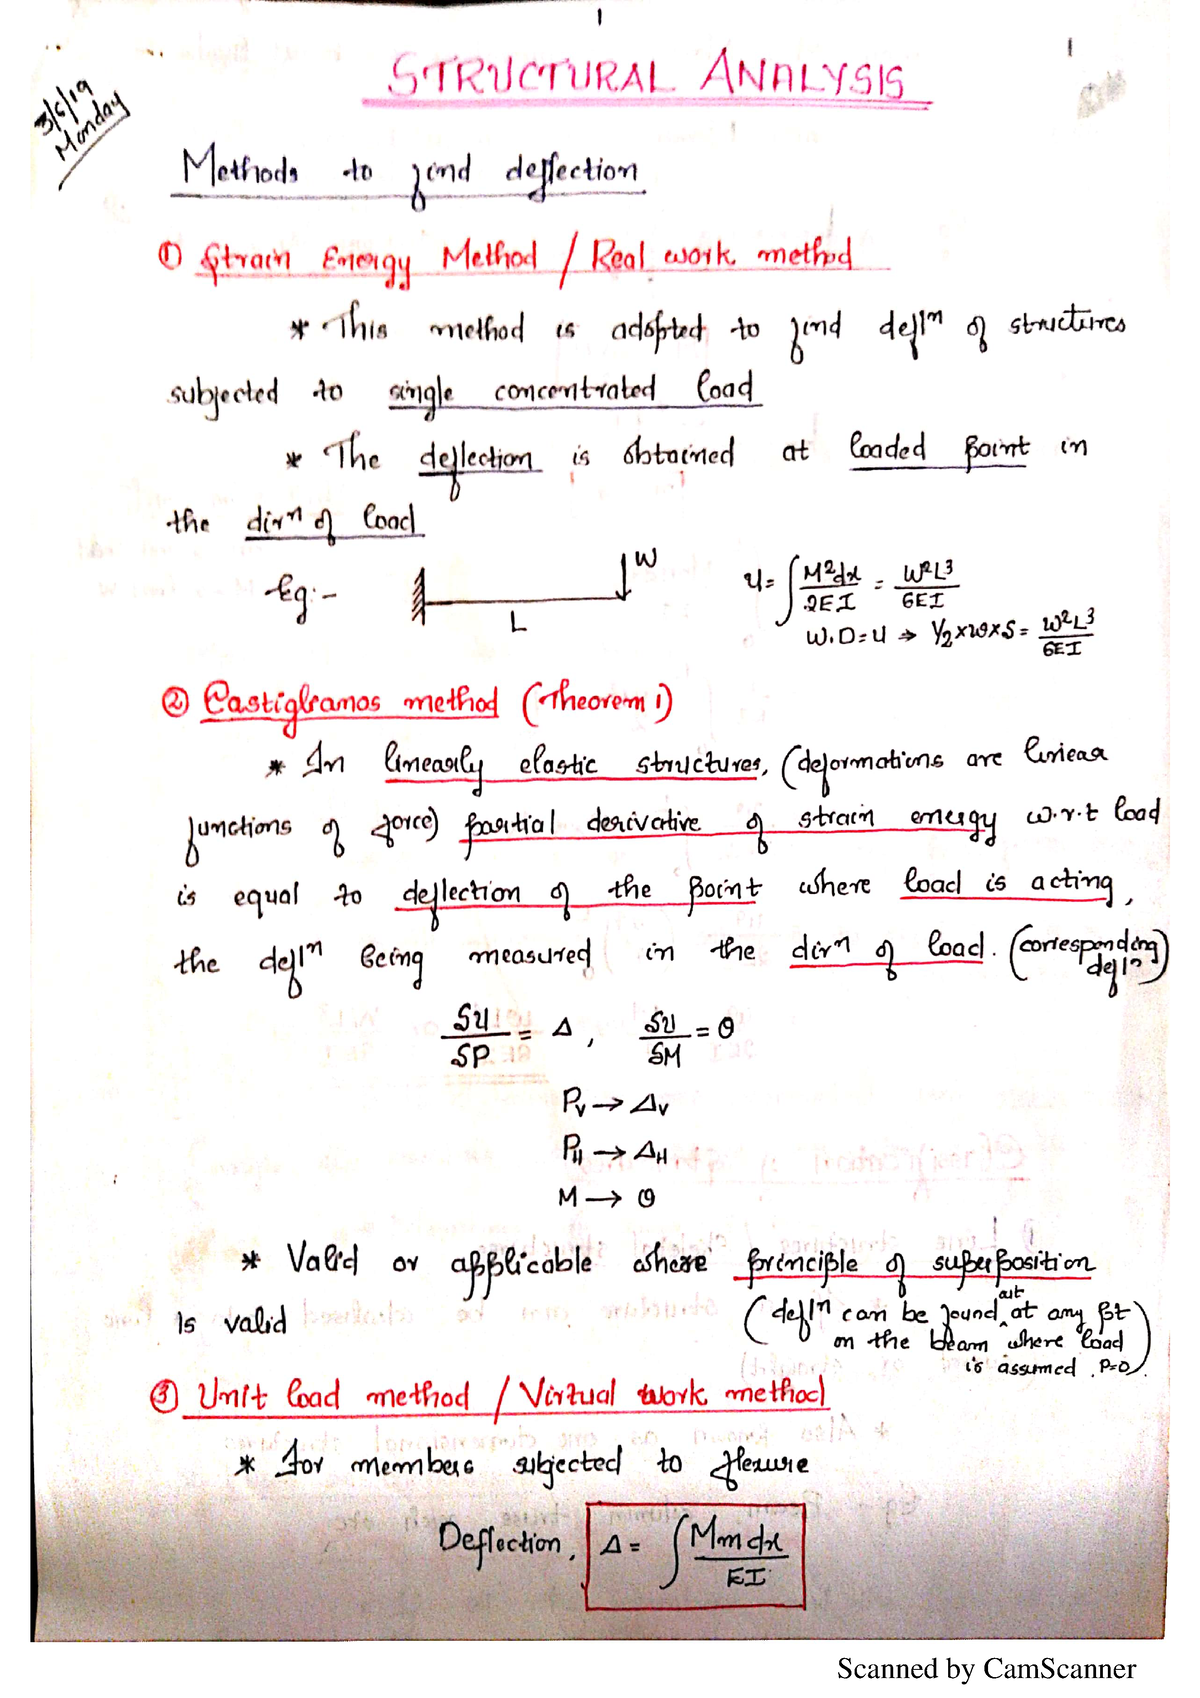 1
1
3/6/19
Monday
STRUCTURAL ANALYSIS
Methods to find deflection
① Strain Energy Method / Real work method
* This method is adopted to find deflⁿ of structures
subjected to single concentrated load
* The deflection is obtained at loaded point in
the dirⁿ of load
Eg:-
W
L
U = ∫ M²dx / 2EI = W²L³ / 6EI
W.D = U ⇒ 1/2 × w × δ = W²L³ / 6EI
② Castiglianos method (Theorem 1)
* In linearly elastic structures, (deformations are linear
functions of force) partial derivative of strain energy w.r.t load
is equal to deflection of the point where load is acting,
the deflⁿ being measured in the dirⁿ of load. (corresponding
deflⁿ)
δU/δP = Δ, δU/δM = θ
Pv → Δv
PH → ΔH
M → θ
* Valid or applicable where principle of superposition
is valid
(deflⁿ can be found out at any pt
on the beam where load
is assumed. P=0).
③ Unit load method / Virtual work method
* For members subjected to flexure
Deflection, Δ = ∫ Mmdx / EI
Scanned by CamScanner